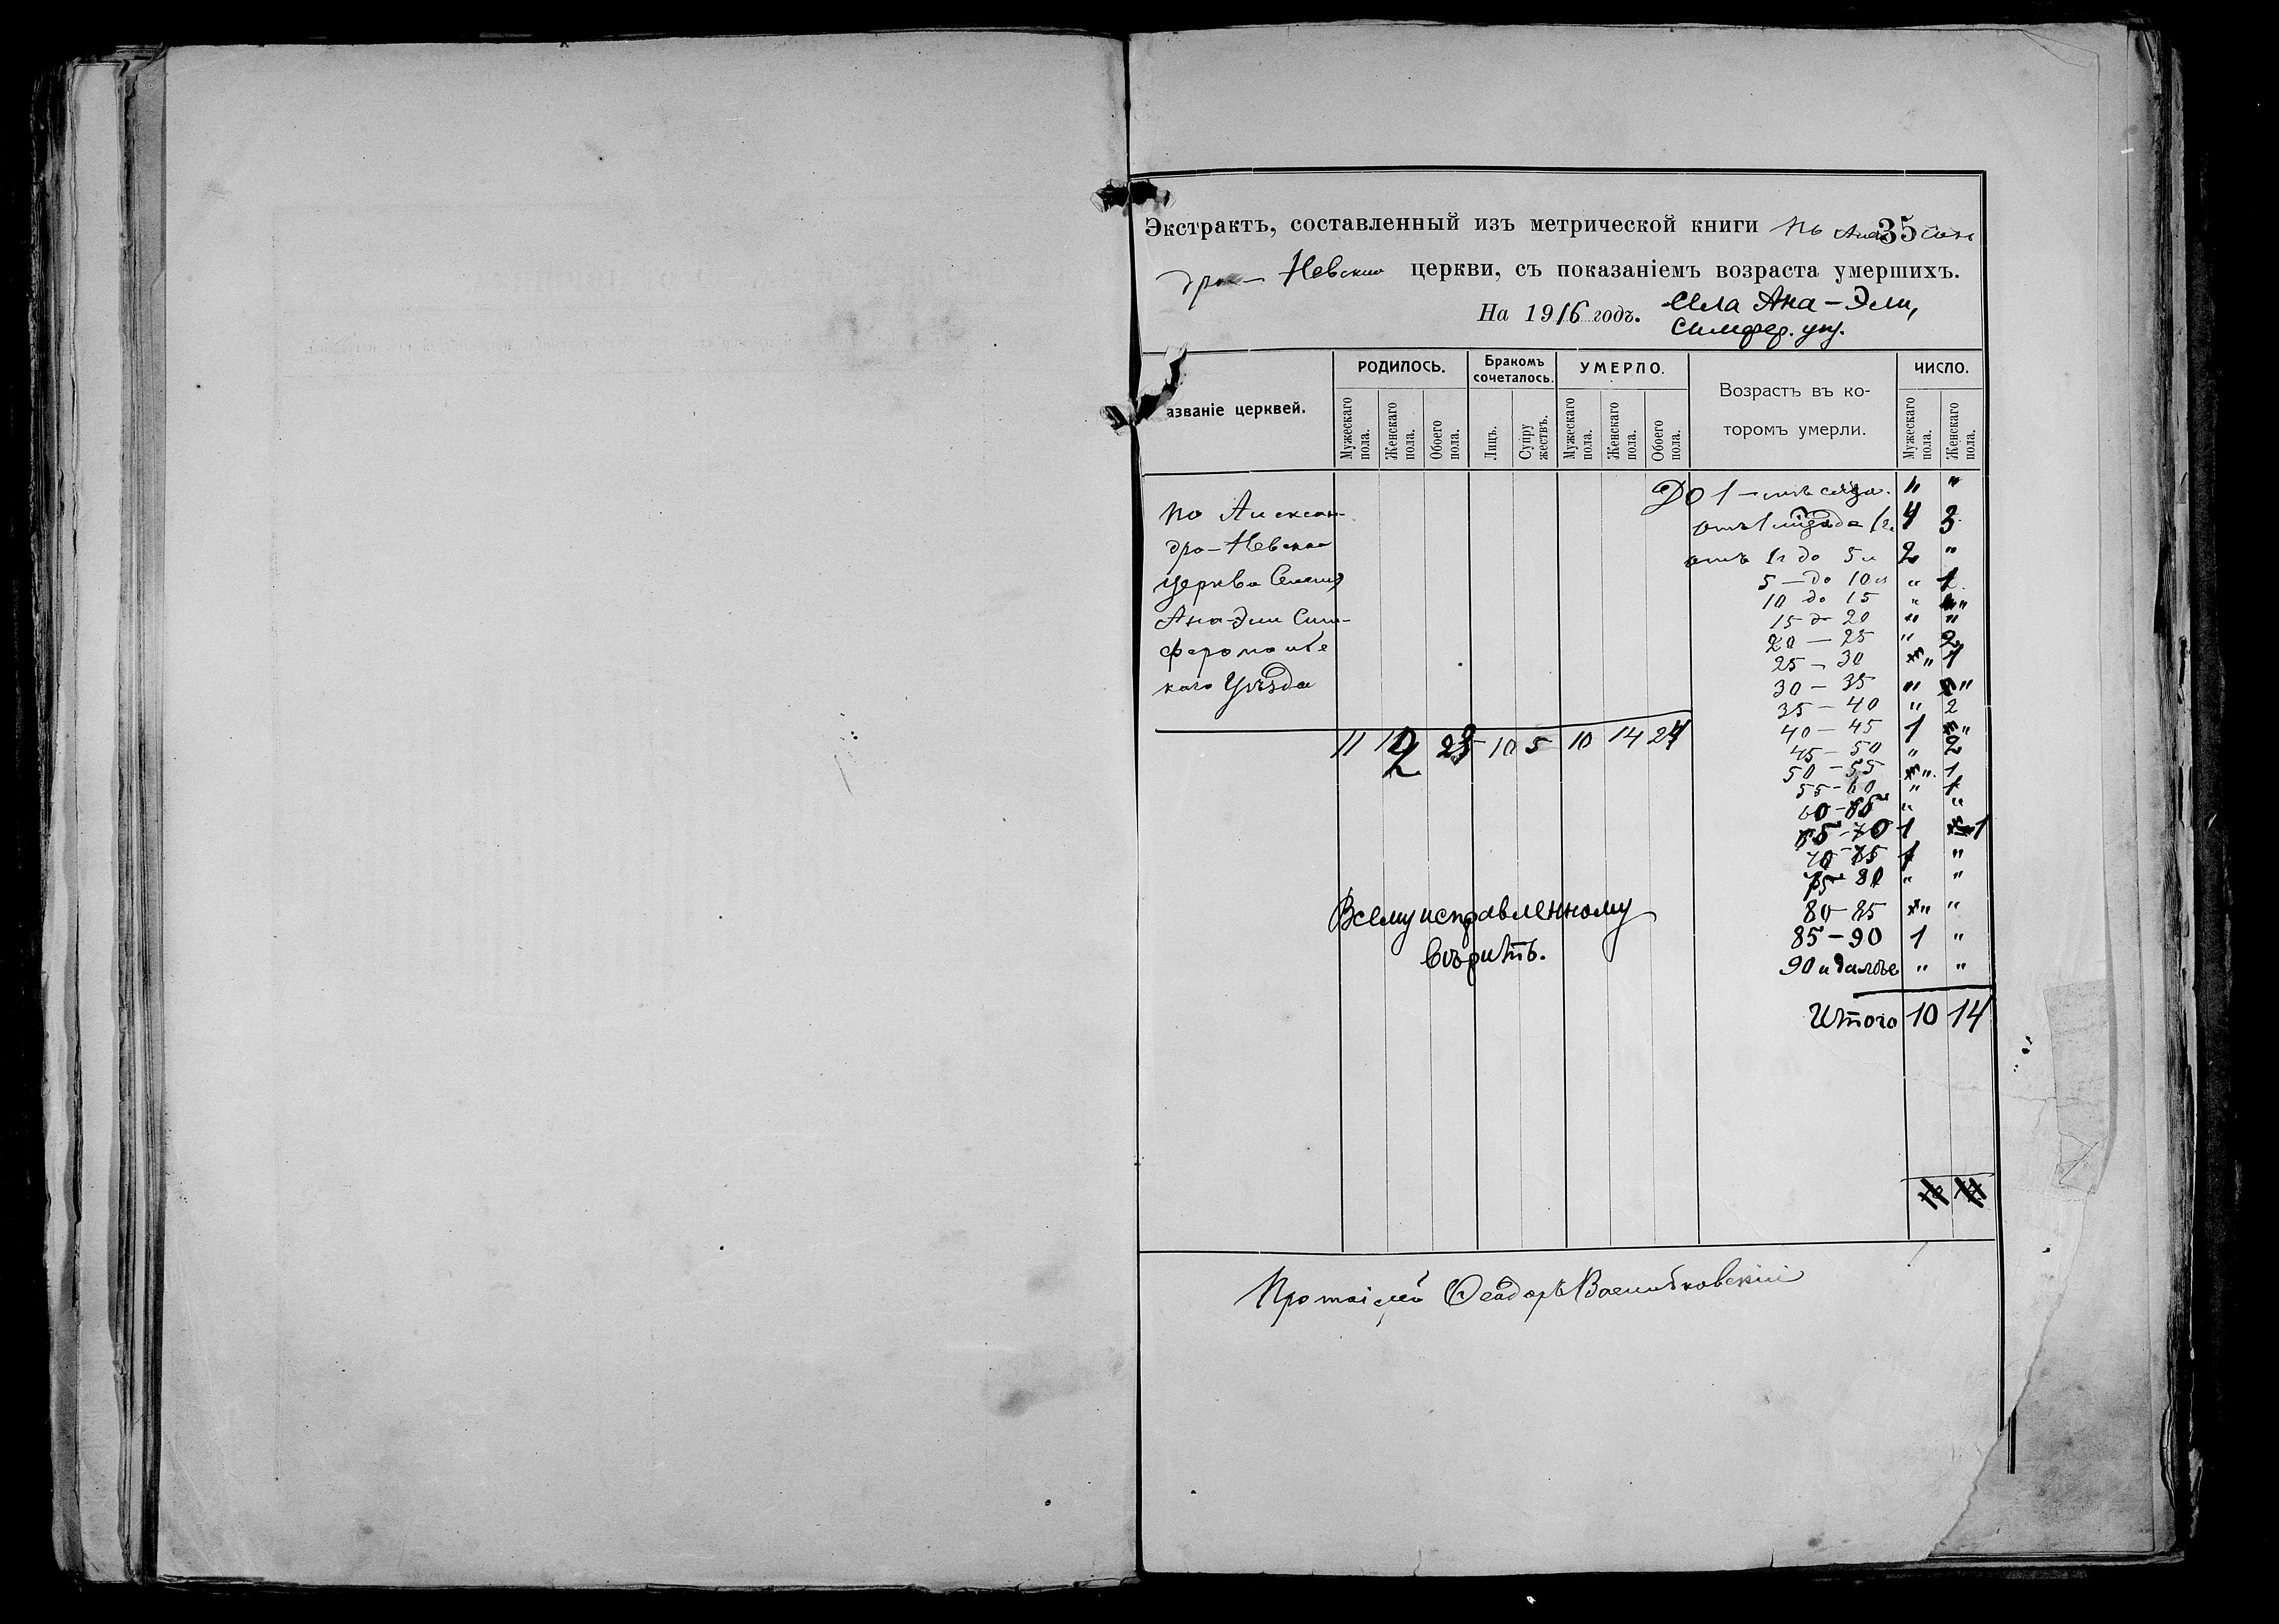 Экстрактъ, составленный изъ метрической книги по Алек 35
дро-Невской церкви, съ показаніемъ возраста умершихъ.
На 1916 годъ. Села Ана-Эли,
Симфер. уѣз.
азваніе церквей.
РОДИЛОСЬ.
Бракомъ сочеталось.
УМЕРЛО.
Возрастъ въ ко-
торомъ умерли.
ЧИСЛО.
Мужескаго пола.
Женскаго пола.
Обоего пола.
Лицъ.
Супру жествъ.
Мужескаго пола.
Женскаго пола.
Обоего пола.
Мужескаго пола.
Женскаго пола.
По Алексан-
дро-Невской
церкви Селенія
Ана-Эли Сим-
ферополье
каго Уѣзда
11 12 23 10 5 10 14 24
До 1-мѣсяца. " "
отъ 1 до 1 г. 4 3
отъ 1 г до 5 л 2 "
5 — до 10 л " 1
10 до 15 " "
15 до 20 " "
20 — 25 " 2
25 — 30 " 1
30 — 35 " "
35 — 40 " 2
40 — 45 1 "
45 — 50 " 2
50 — 55 " 1
55 — 60 " 1
60 — 65 " "
65 — 70 1 1
70 — 75 1 "
75 — 80 " "
80 — 85 " "
85 — 90 1 "
90 и далѣе " "
Итого 10 14
Всему исправленному
вѣрить.
Протоіерей Ѳеодоръ Войтковскій